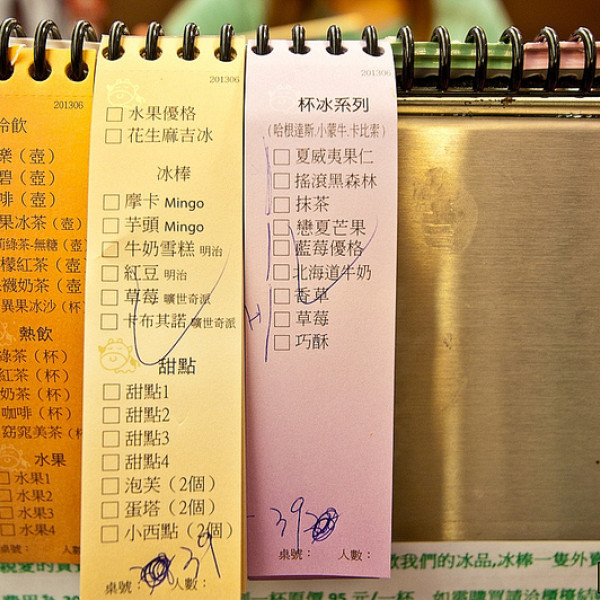 201306
冷飲
樂（壺）
碧（壺）
啡（壺）
果冰茶（壺）
綠茶-無糖（壺）
檬紅茶（壺）
襪奶茶（壺）
異果冰沙（杯）
熱飲
綠茶（杯）
紅茶（杯）
奶茶（杯）
咖啡（杯）
窈窕美茶（杯）
水果
水果1
水果2
水果3
水果4
桌號： 人數：
201306
水果優格
花生麻吉冰
冰棒
摩卡 Mingo
芋頭 Mingo
牛奶雪糕 明治
紅豆 明治
草莓 曠世奇派
卡布其諾 曠世奇派
甜點
甜點1
甜點2
甜點3
甜點4
泡芙（2個）
蛋塔（2個）
小西點（2個）
39
桌號： 人數：
201306
杯冰系列
（哈根達斯.小蒙牛.卡比索）
夏威夷果仁
搖滾黑森林
抹茶
戀夏芒果
藍莓優格
北海道牛奶
香草
草莓
巧酥
39
桌號： 人數：
親愛的貴
我們的冰品,冰棒一隻外賣
費用為
一杯原價 95 元/杯 如需購買請洽櫃檯結